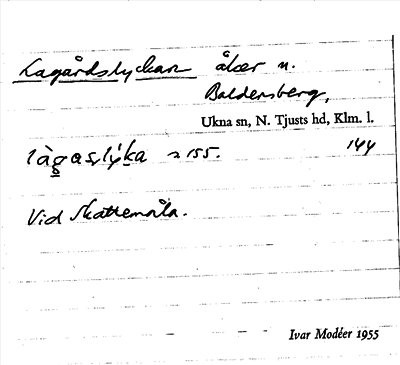 Lagårdslyckan åker n.
Baldersberg,
Ukna sn, N. Tjusts hd, Klm. l.
làgaslýka 155. 144
Vid Skattemåla.
Ivar Modéer 1955